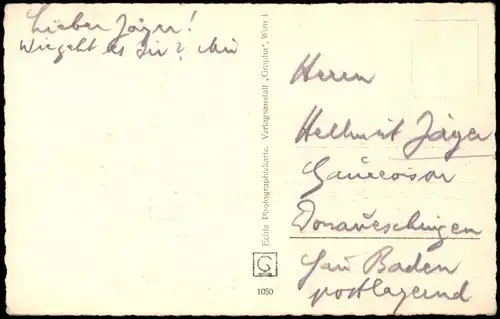 Lieber Jäger!
Wie geht es Dir?
Echte Photographiekarte. Verlagsanstalt „Grapha", Wien I
G
1050
Herrn
Hellmut Jäger
Donaueschingen
Gau Baden
postlagernd